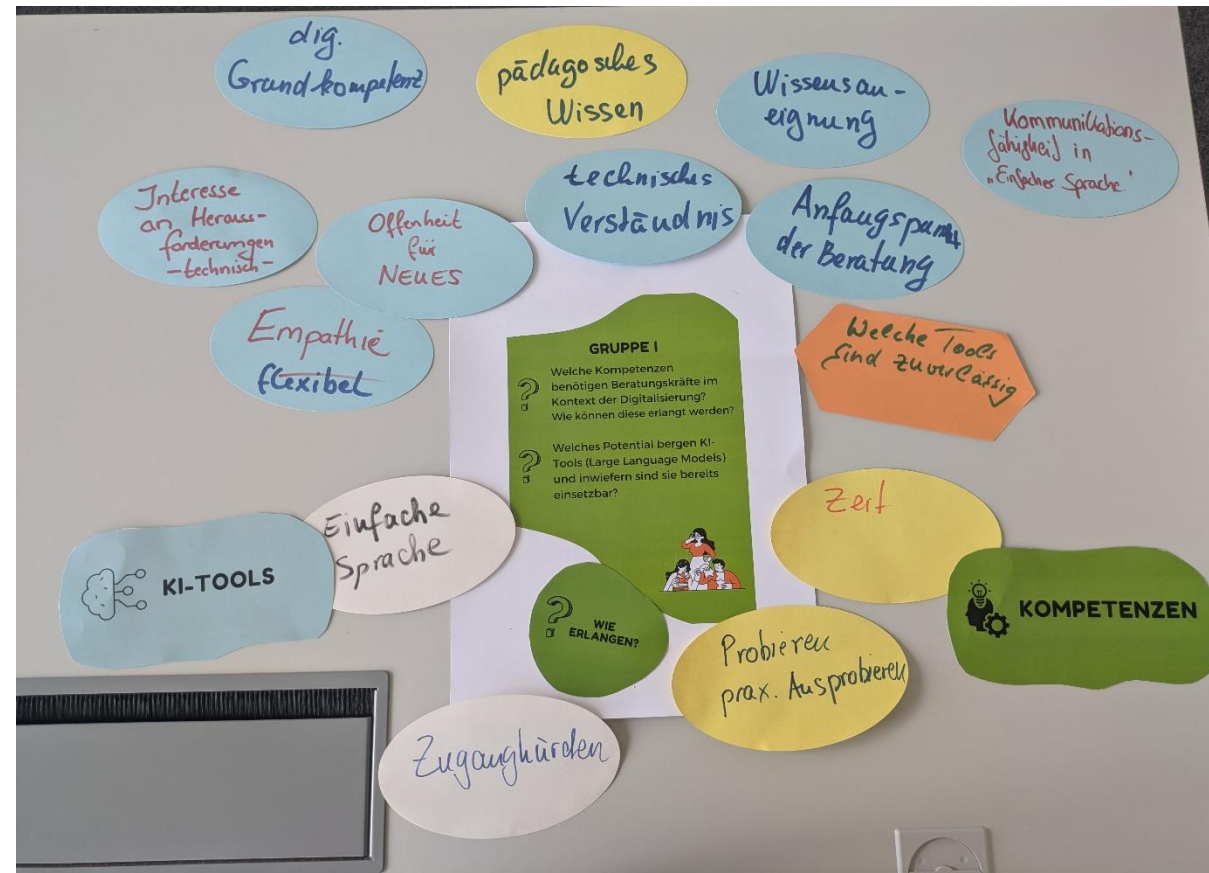 dig.
Grundkompetenz
pädagosches
Wissen
Wissensan-
eignung
Kommunikations-
fähigkeit in
„Einfacher Sprache"
Interesse
an Heraus-
forderungen
-technisch-
Offenheit
für
NEUES
technisches
Verständnis
Anfangspunkt
der Beratung
Empathie
flexibel
Welche Tools
sind zuverlässig
GRUPPE I
? Welche Kompetenzen
benötigen Beratungskräfte im
Kontext der Digitalisierung?
Wie können diese erlangt werden?
? Welches Potential bergen KI-
Tools (Large Language Models)
und inwiefern sind sie bereits
einsetzbar?
KI-TOOLS
Einfache
Sprache
Zeit
KOMPETENZEN
? WIE
ERLANGEN?
Probieren
prax. Ausprobieren
Zuganghürden